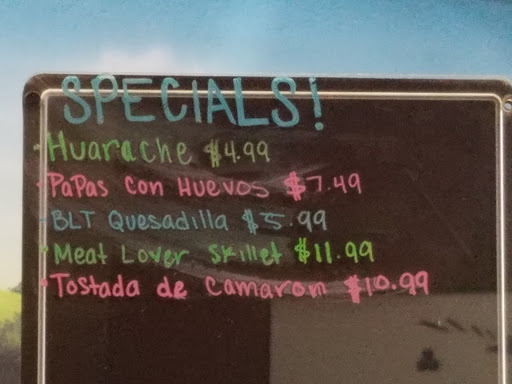 SPECIALS!
Huarache $4.99
Papas con Huevos $7.49
BLT Quesadilla $5.99
Meat Lover Skillet $11.99
Tostada de camaron $10.99